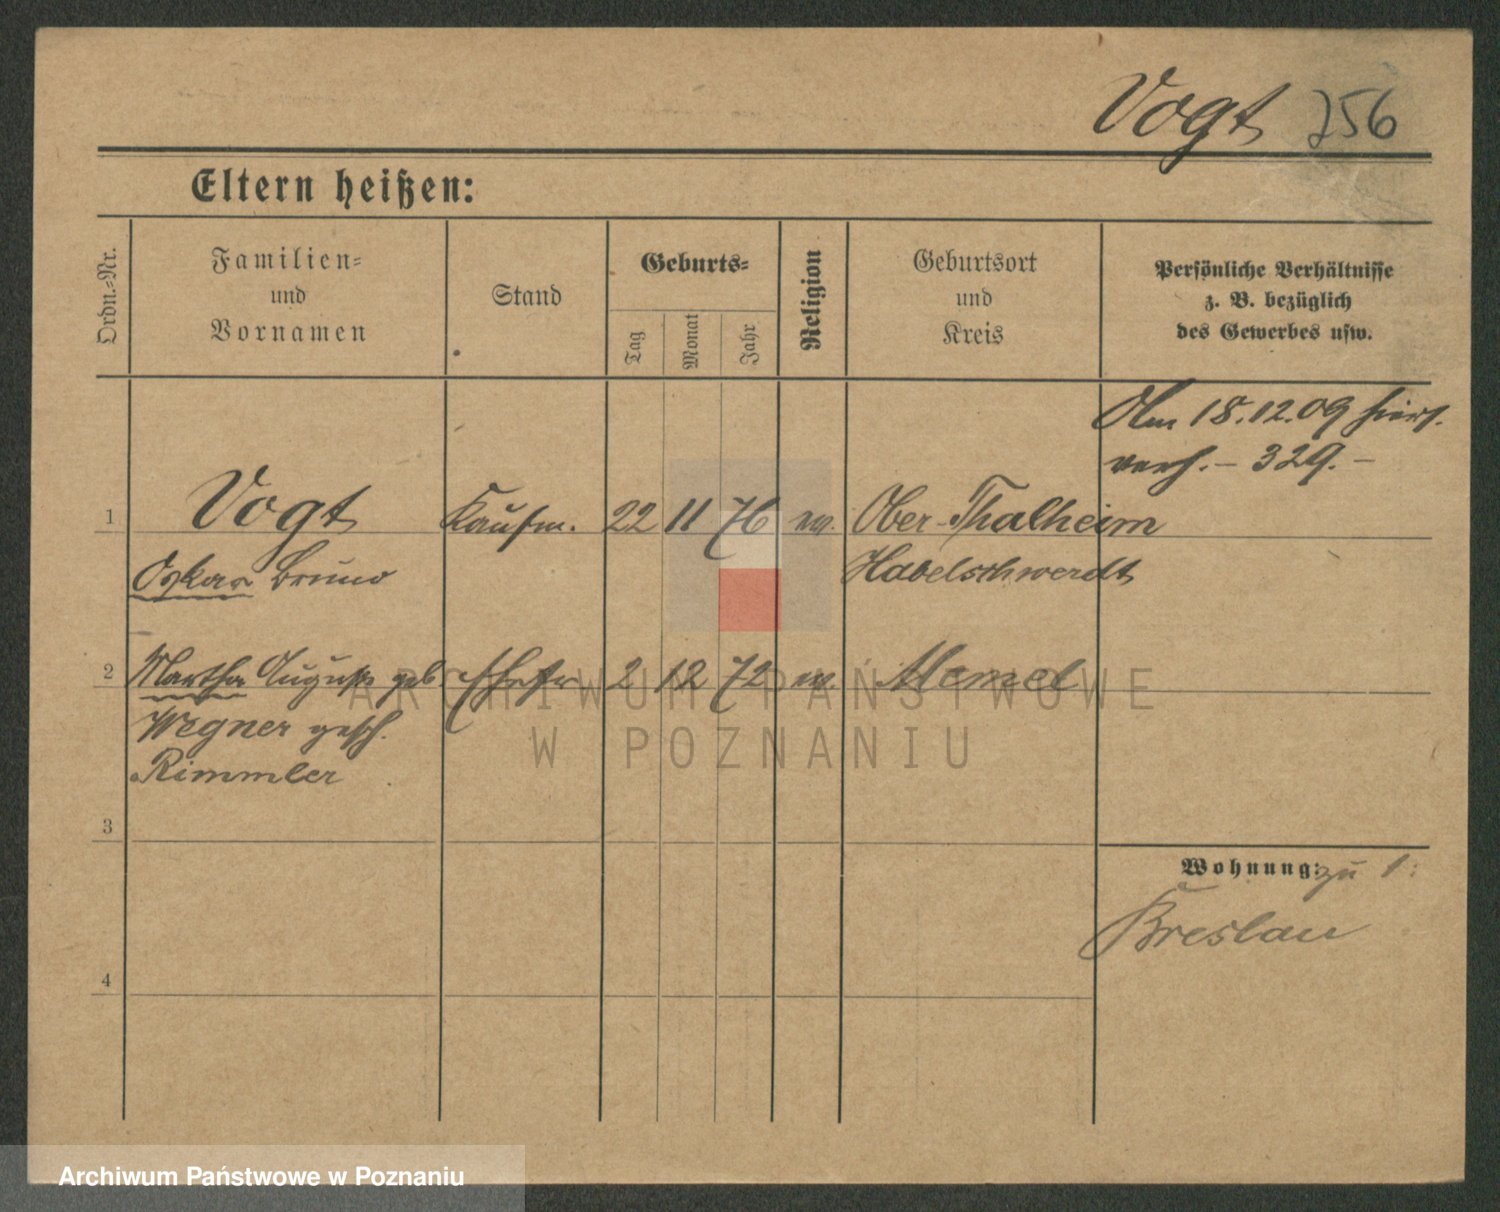 Vogt 256
Eltern heißen:
Ordn.-Nr.
Familien-
und
Vornamen
Stand
Geburts-
Tag
Monat
Jahr
Religion
Geburtsort
und
Kreis
Persönliche Verhältnisse
z. B. bezüglich
des Gewerbes usw.
Am 18.12.09 hiers.
verh. - 329. -
1 Vogt Kaufm. 22 11 76 ev. Ober-Thalheim
Oskar Bruno Habelschwerdt
2 Martha Auguste geb. Ehefr 2 12 72 ev. Memel
Wegner gesch.
Rimmler
3
Wohnung: zu 1:
Breslau
4
ARCHIWUM PAŃSTWOWE
W POZNANIU
Archiwum Państwowe w Poznaniu